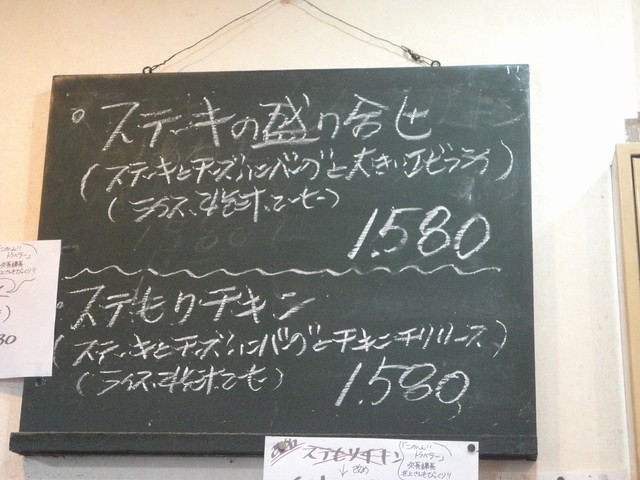 ステーキの盛り合せ
(ステーキとチーズハンバーグと大きいエビフライ)
(ライス、みそ汁、コーヒー)
1.580
ステもりチキン
(ステーキとチーズハンバーグとチキンチリソース)
(ライス、みそ汁、コーヒー)
1.580
ステもりチキン
↓改め